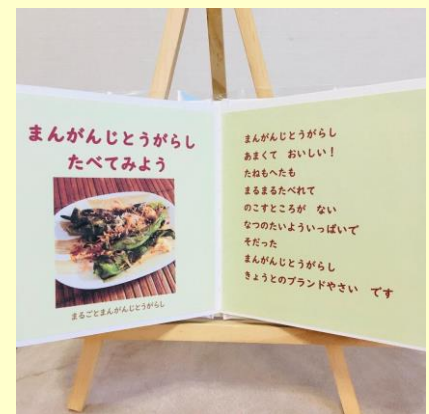 まんがんじとうがらし
たべてみよう
まるごとまんがんじとうがらし
まんがんじとうがらし
あまくて おいしい！
たねもへたも
まるまるたべれて
のこすところが ない
なつのたいよういっぱいで
そだった
まんがんじとうがらし
きょうとのブランドやさい です